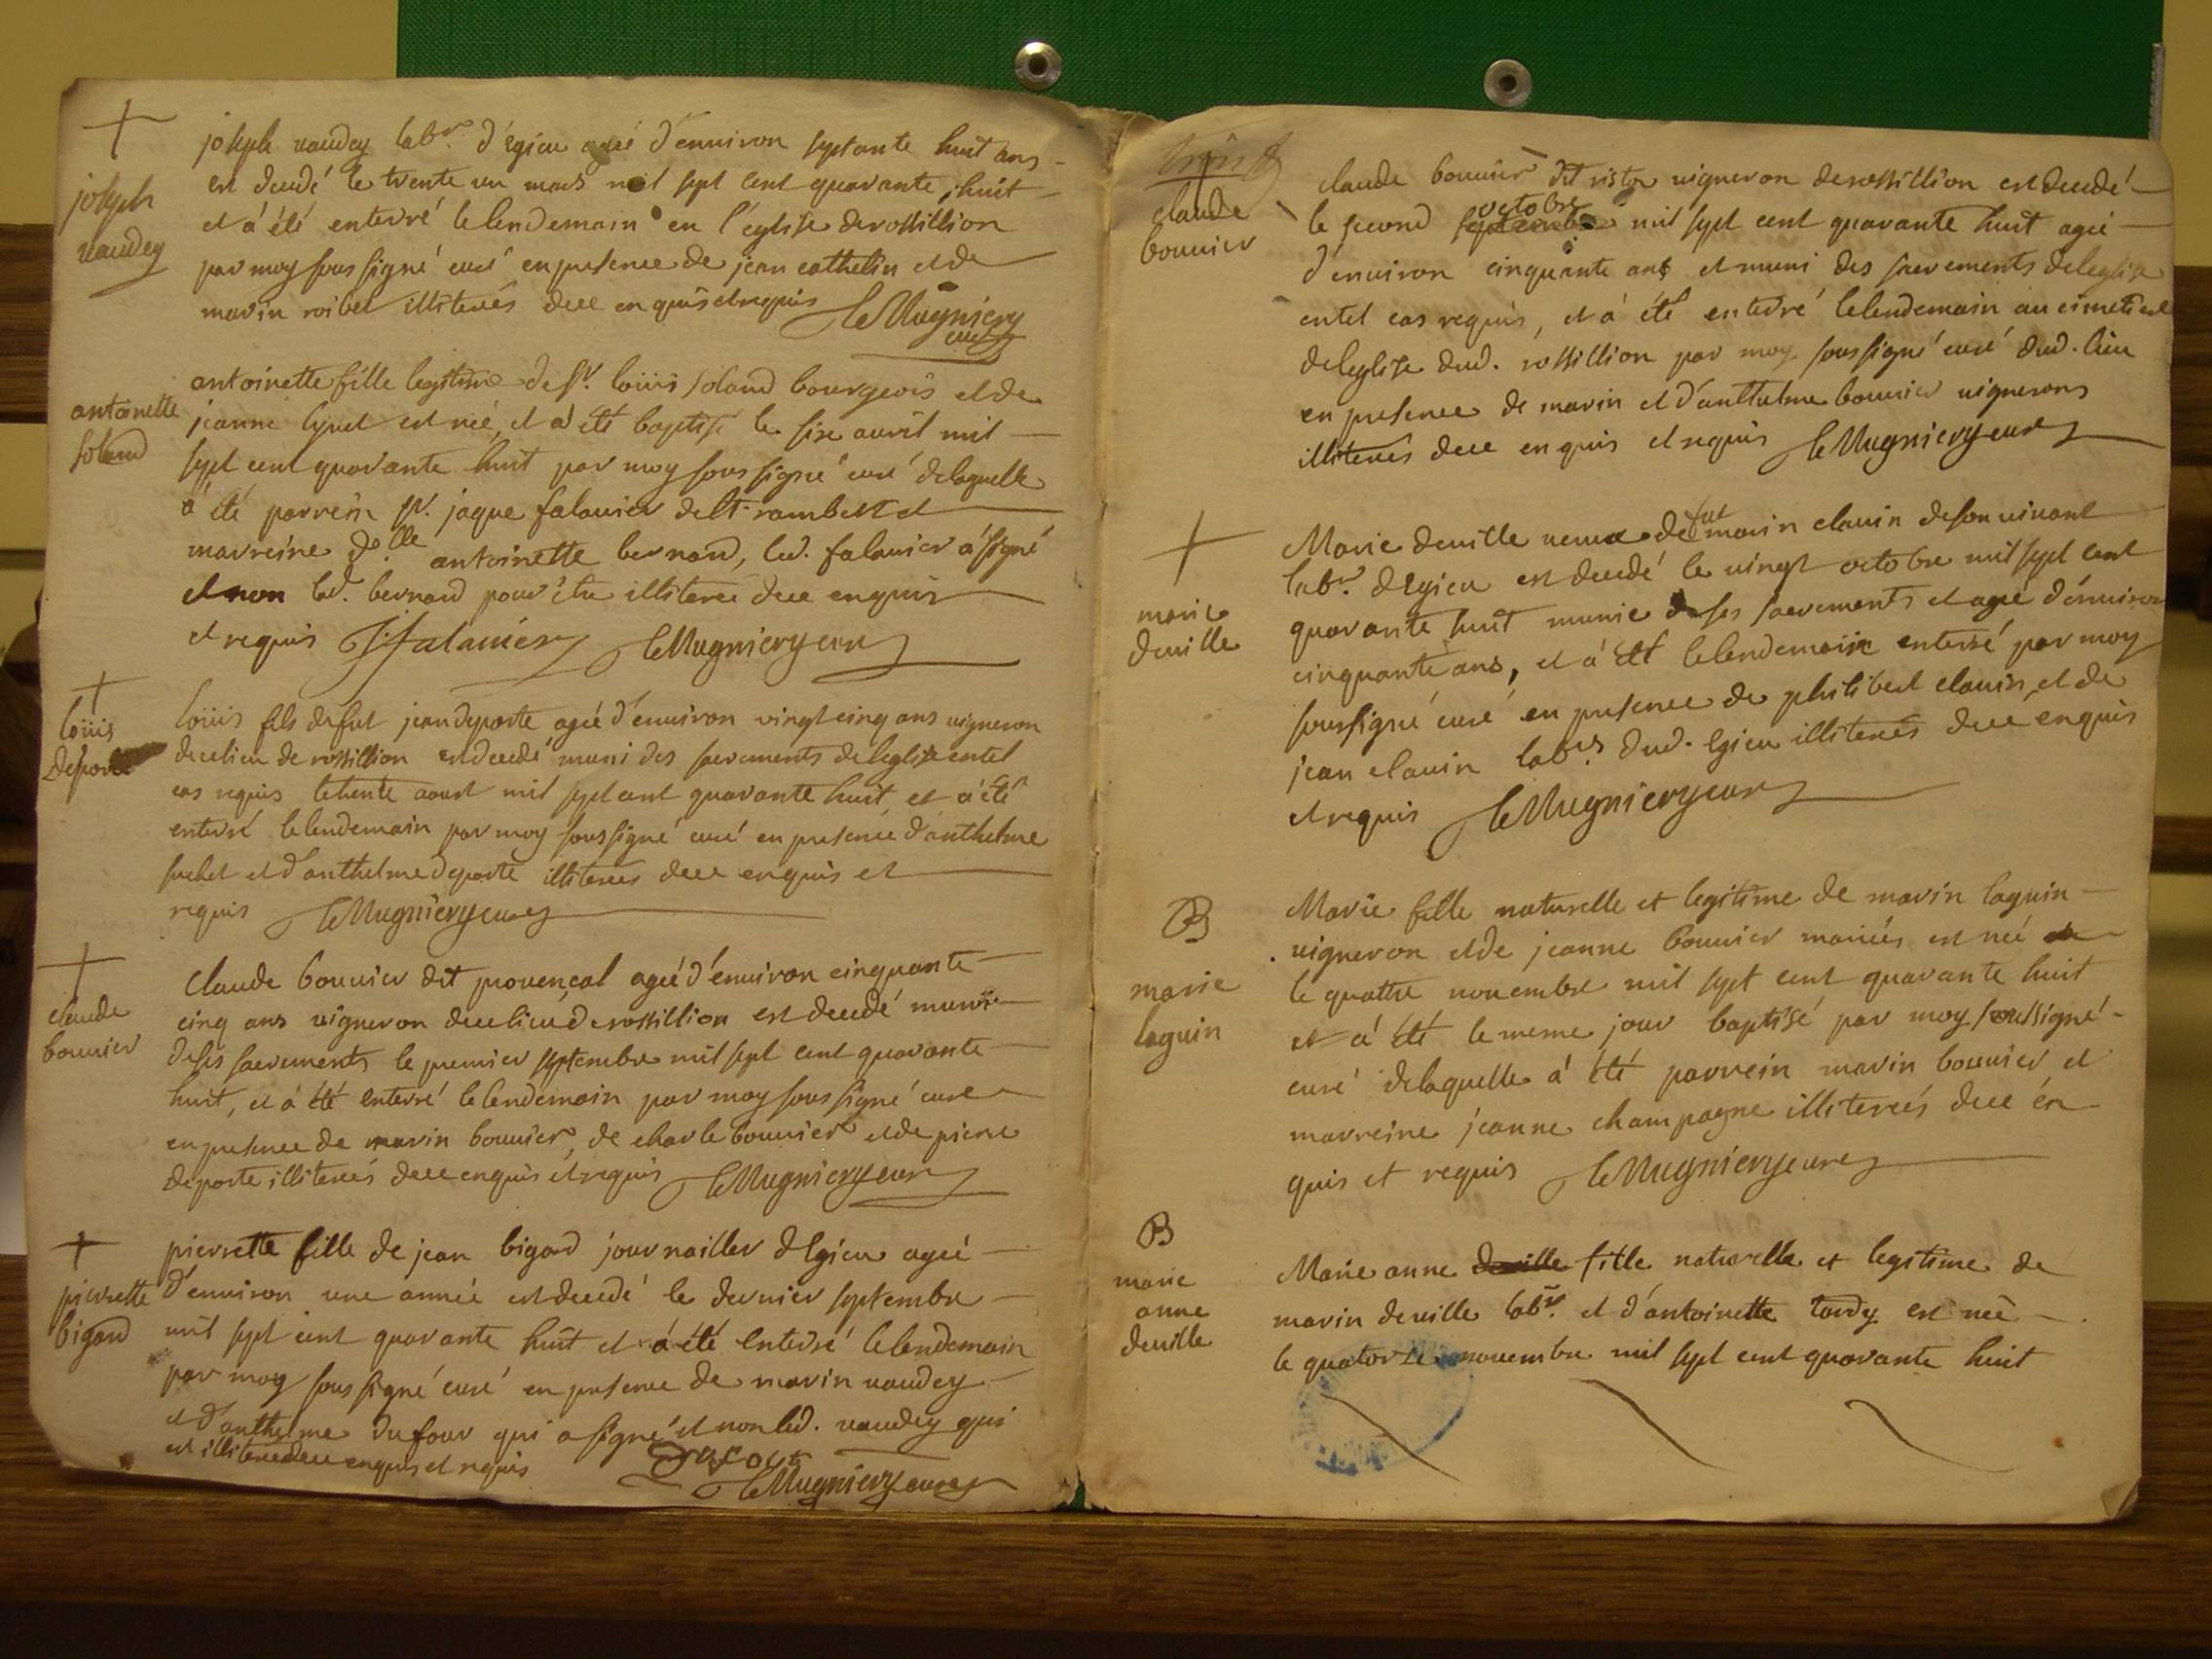 joseph vaudey
joseph vaudey labr. d'Egieu agé d'environ septante huit ans
est decedé le trente un mars mil sept cent quarante huit
et á été enterré le lendemain en l'église de rossillion
par moy soussigné curé en presence de jean cathelin et de
marin roibet illiterés de ce enquis et requis LeMugniery
curé
antoinette soland
antoinette fille legitime de Sr. loüis soland bourgeois et de
jeanne est née, et a été baptisé le six avril mil
sept cent quarante huit par moy soussigné curé de laquelle
á été parrein sr. jaque falavier de st. rambert et
marreine dolle. antoinette bernard, led. falavier á signé
et non lad. bernard pour être illiterée de ce enquis
et requis J. falavier LeMugniery curé
loüis Deporte
loüis fils de fut jean deporte agé d'environ vingt cinq ans vigneron
de ce lieu de rossillion est decedé muni des sacrements de leglise en tel
cas requis le trente aoust mil sept cent quarante huit, et á été
enterré le lendemain par moy soussigné curé en presence d'anthelme
suchet et d'anthelme deporte illiterés de ce enquis et
requis LeMugniery curé
claude bouvier
claude bouvier dit provençal agé d'environ cinquante
cinq ans vigneron de ce lieu de rossillion est decedé muni
de ses sacrements le premier septembre mil sept cent quarante
huit, et á été enterré le lendemain par moy soussigné curé
en presence de marin bouvier, de charle bouvier et de pierre
deporte illiterés de ce enquis et requis LeMugniery curé
pierrette bigard
pierrette fille de jean bigard journailler d'Egieu agée
d'environ une année est decedé le dernier septembre
mil sept cent quarante huit et á été enterré le lendemain
par moy soussigné curé en presence de marin vaudey
et d'anthelme dufour qui a signé et non led. vaudey qui
est illiteré de ce enquis et requis Dufour
LeMugniery curé
claude bouvier
claude bouvier dit vigneron de rossillion est decedé
octobre
le second septembre mil sept cent quarante huit agé
d'environ cinquante ans et muni des sacrements de leglise
en tel cas requis, et á été enterré le lendemain au cimetiere
de leglise dud. rossillion par moy soussigné curé dud. lieu
en presence de marin et d'anthelme bouvier vignerons
illiterés de ce enquis et requis LeMugniery curé
marie deville
Marie deville veuve de fut marin clavin de son vivant
labr. d'Egieu est decedé le vingt octobre mil sept cent
quarante huit munie de ses sacrements et agé d'environ
cinquante ans, et á été le lendemain enterré par moy
soussigné curé en presence de philibert clavin et de
jean clavin labrs. dud. Egieu illiterés de ce enquis
et requis LeMugniery curé
B
marie laguin
Marie fille naturelle et legitime de marin laguin
vigneron et de jeanne bouvier mariés est né
le quattre novembre mil sept cent quarante huit
et á été le meme jour baptisé par moy soussigné
curé de laquelle á été parrein marin bouvier et
marreine jeanne champagne illiterés de ce en
quis et requis LeMugniery curé
B
marie anne deville
Marie anne deville fille naturelle et legitime de
marin deville labr. et d'antoinette tardy est née
le quatorze novembre mil sept cent quarante huit